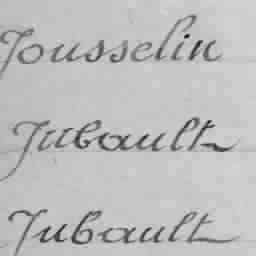 Jousselin
Jubault
Jubault